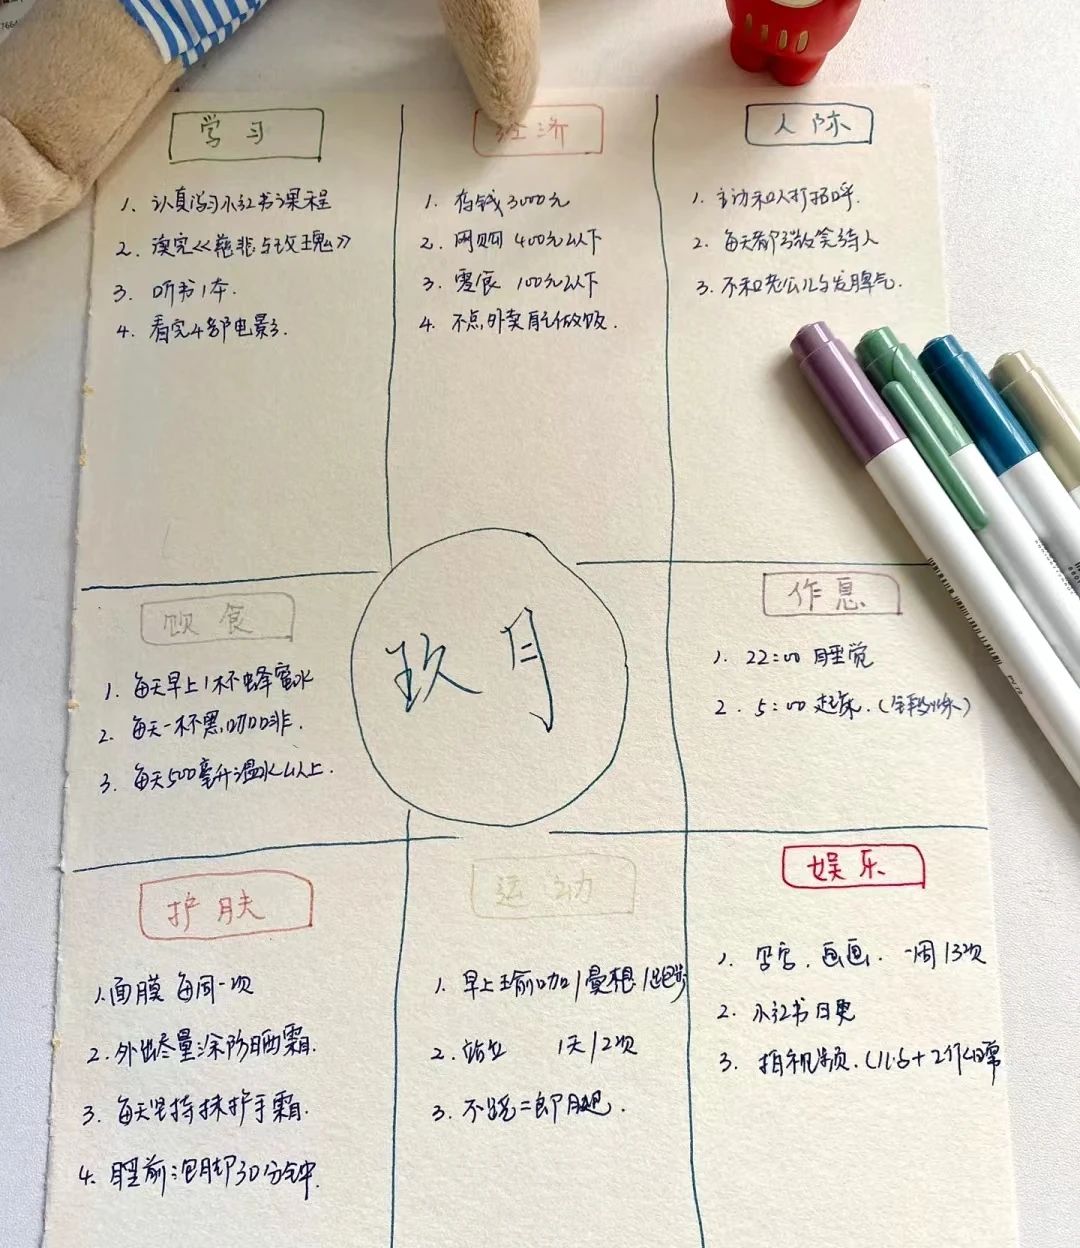 学习
1. 认真学习小红书课程
2. 读完《慈悲与玫瑰》
3. 听书1本.
4. 看完4部电影.
经济
1. 存钱3000元
2. 网购 400元以下
3. 零食 100元以下
4. 不点外卖自己做饭.
人际
1. 主动和人打招呼.
2. 每天都微笑待人
3. 不和老公儿与发脾气.
饮食
1. 每天早上1杯蜂蜜水
2. 每天一杯黑咖啡.
3. 每天500毫升温水以上.
玖月
作息
1. 22:00 睡觉
2. 5:00 起床.(锻炼)
护肤
1. 面膜 每周一次
2. 外出尽量涂防晒霜.
3. 每天坚持抹护手霜.
4. 睡前泡脚30分钟.
运动
1. 早上瑜咖/曼想/跑步
2. 站立 1天/2次
3. 不跷二郎腿.
娱乐
1. 写字.画画. 一周/3次
2. 小红书日更
3. 拍视频.